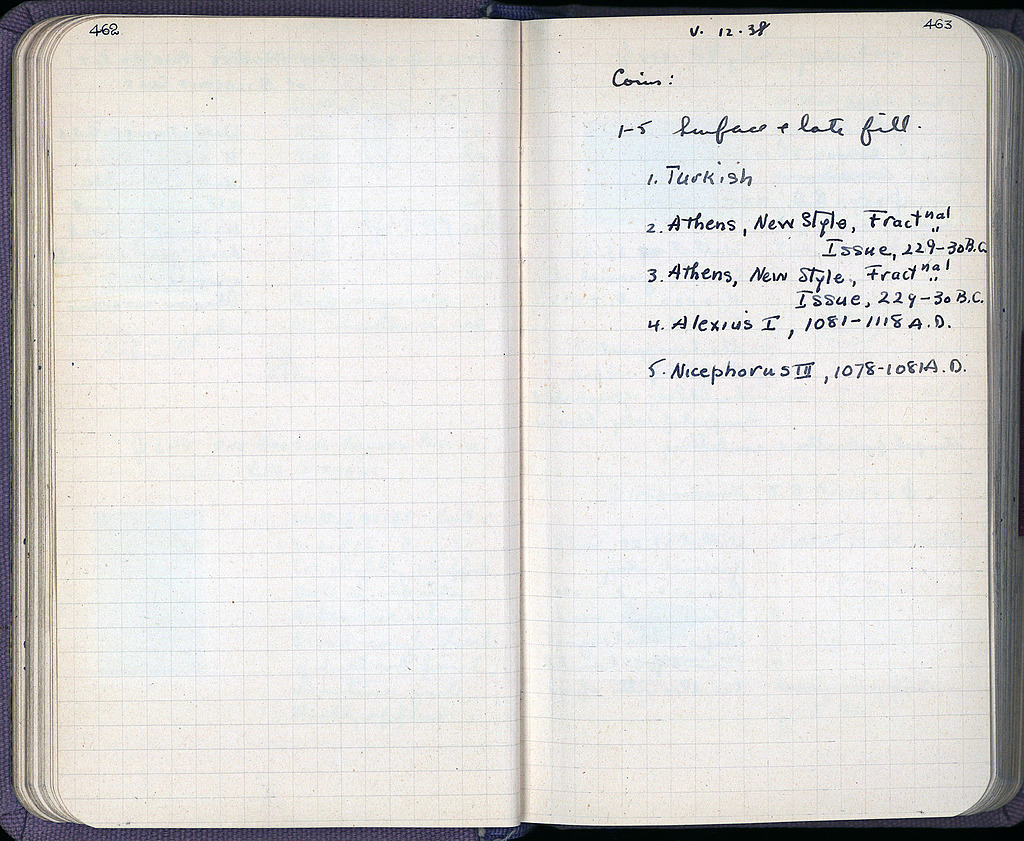 462
463
V. 12.38
Coins:
1-5 Surface & late fill.
1. Turkish
2. Athens, New Style, Fractnal
Issue, 229-30 B.C.
3. Athens, New Style, Fractnal
Issue, 229-30 B.C.
4. Alexius I, 1081-1118 A.D.
5. Nicephorus III, 1078-1081 A.D.